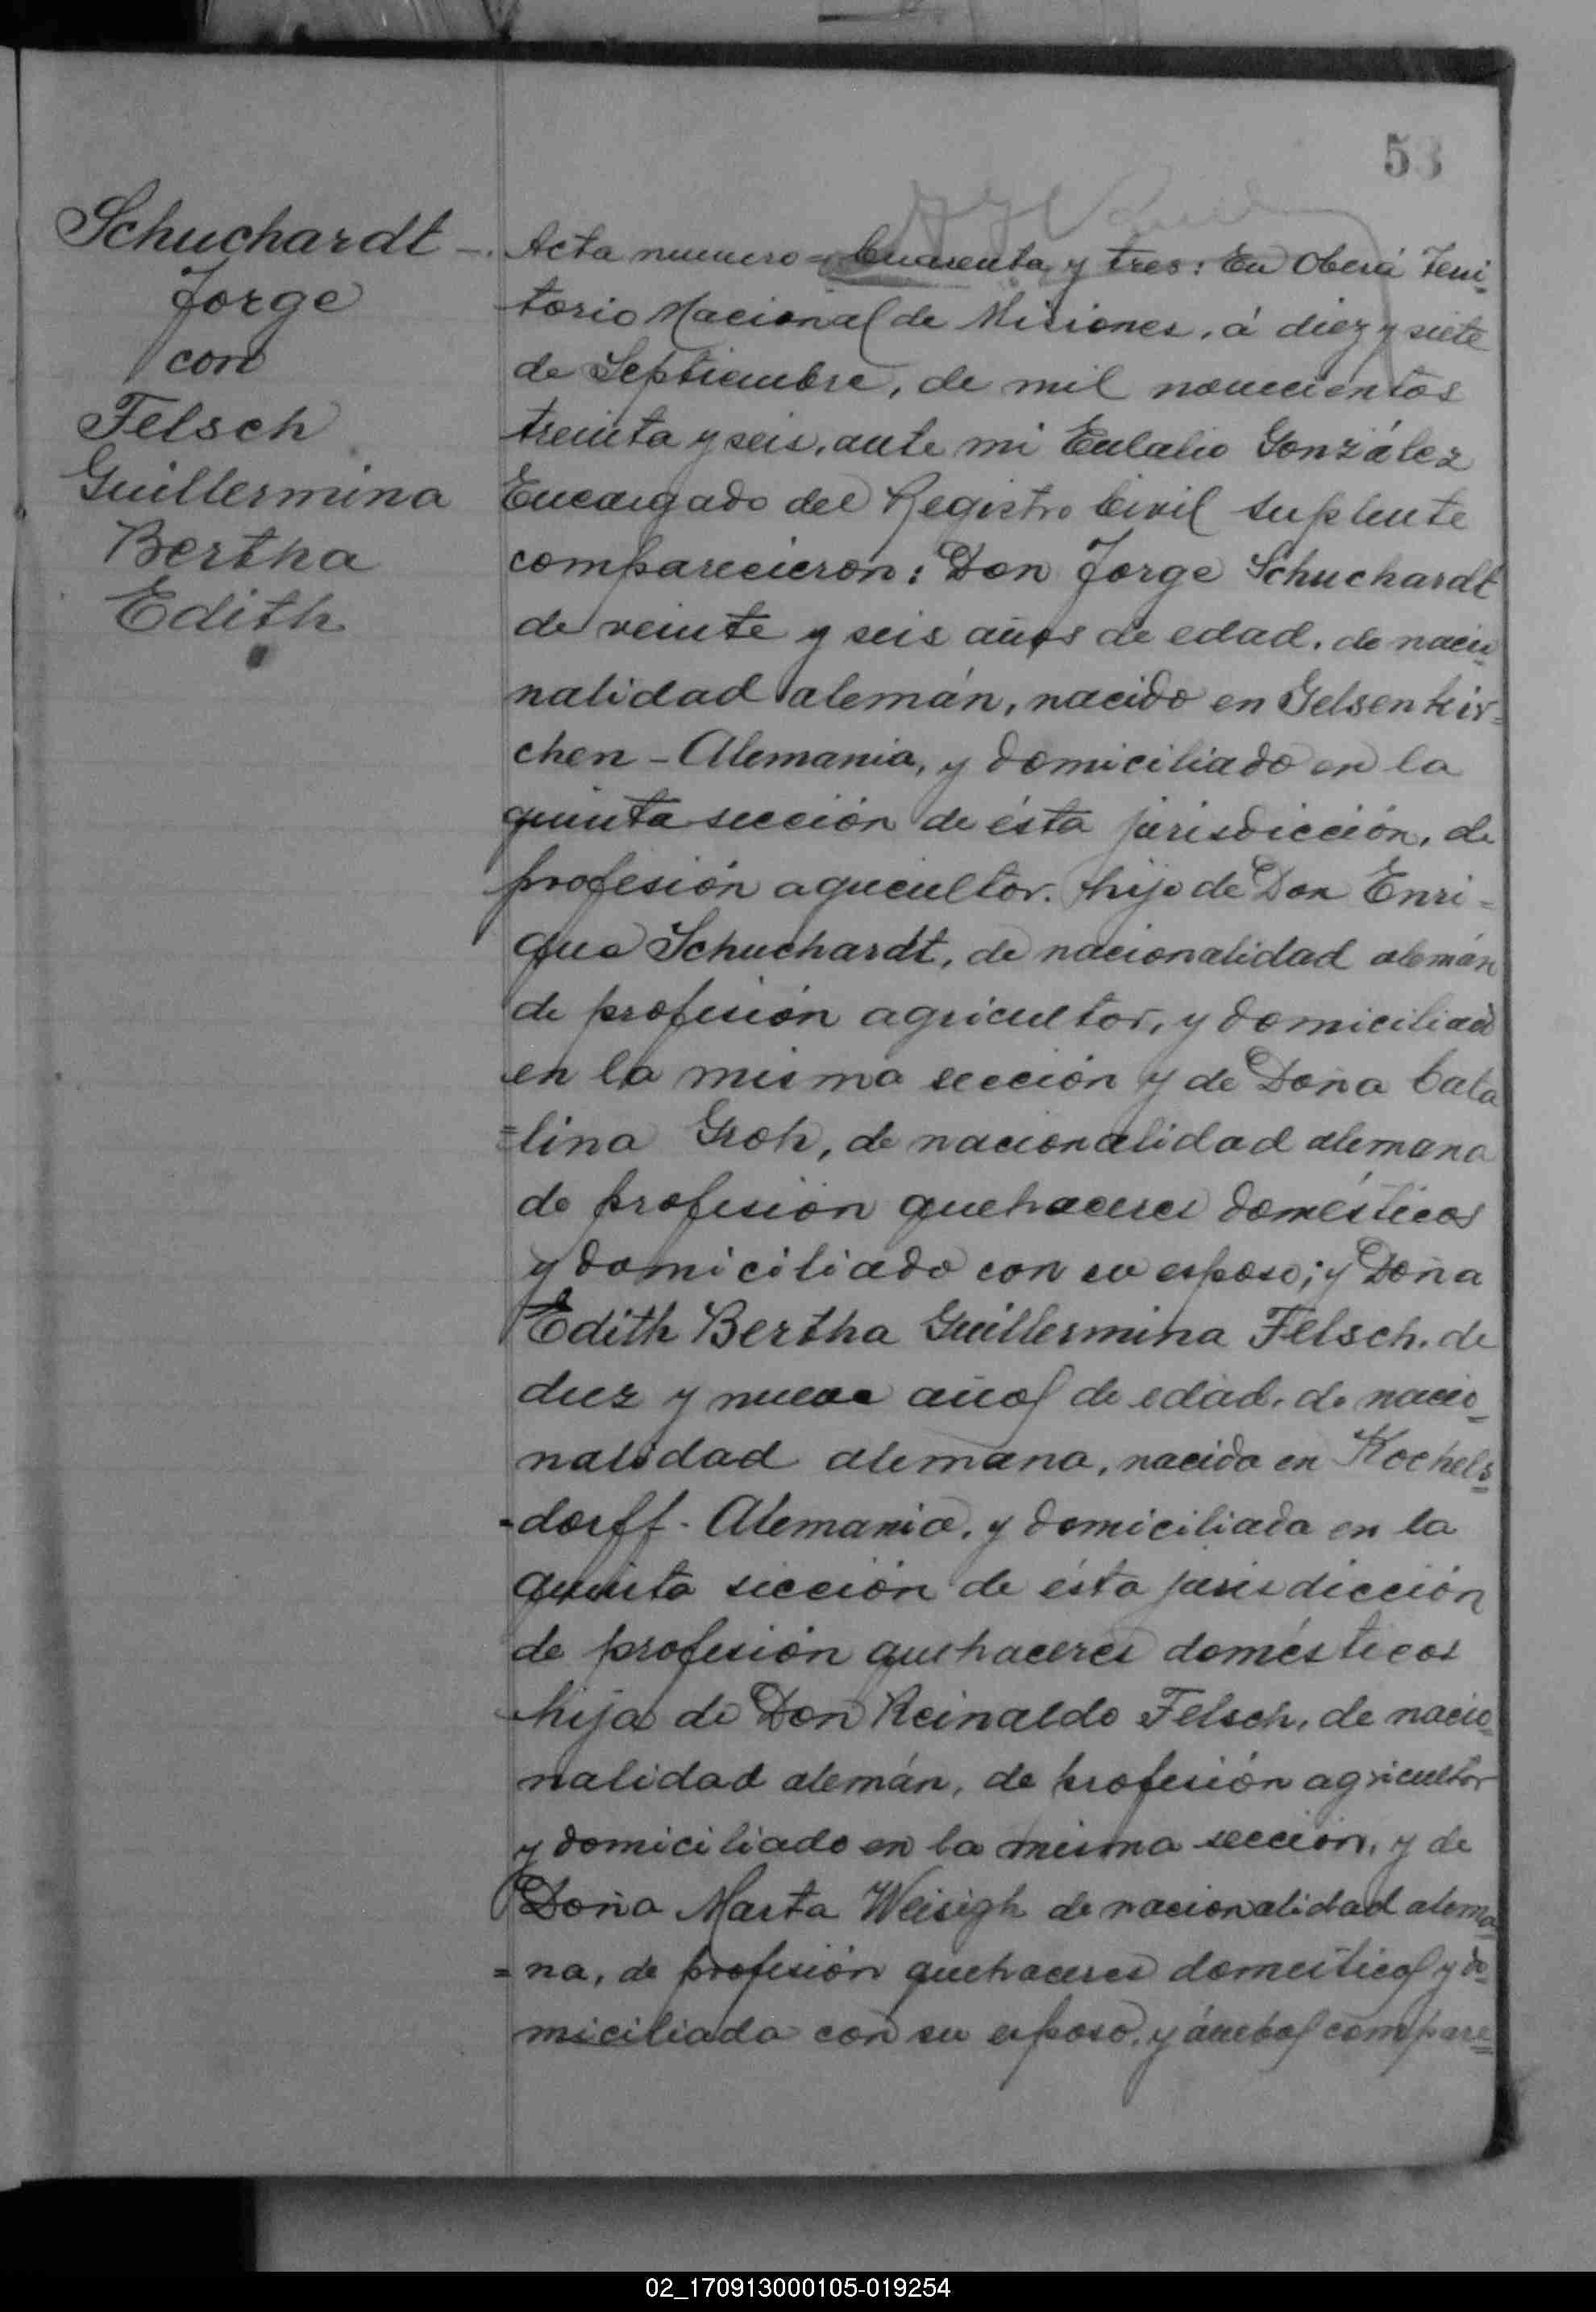 53
Schuchardt
Jorge
con
Felsch
Guillermina
Bertha
Edith
Acta numero = Cuarenta y tres: En Oberá Terri=
torio Nacional de Misiones, á diez y siete
de Septiembre, de mil novecientos
treinta y seis, ante mi Eulalio González
Encargado del Registro Civil suplente
comparecieron: Don Jorge Schuchardt
de veinte y seis años de edad, de nacio=
nalidad alemán, nacido en Gelsenkir=
chen - Alemania, y domiciliado en la
quinta sección de ésta jurisdicción, de
profesión agricultor. hijo de Don Enri=
que Schuchardt, de nacionalidad alemán
de profesión agricultor, y domiciliado
en la misma sección y de Doña Cata
=lina Groh, de nacionalidad alemana
de profesión quehaceres domésticos
y domiciliado con su esposo; y Doña
Edith Bertha Guillermina Felsch, de
diez y nueve años de edad, de nacio=
nalidad alemana, nacida en Kochels=
-dorff - Alemania, y domiciliada en la
quinta sección de ésta jurisdicción
de profesión quehaceres domésticos
hija de Don Reinaldo Felsch, de nacio=
nalidad alemán, de profesión agricultor
y domiciliado en la misma sección, y de
Doña Marta Weisigh de nacionalidad alema
=na, de profesión quehaceres domesticos y do=
miciliada con su esposo, y ámbos compare=
02_170913000105-019254